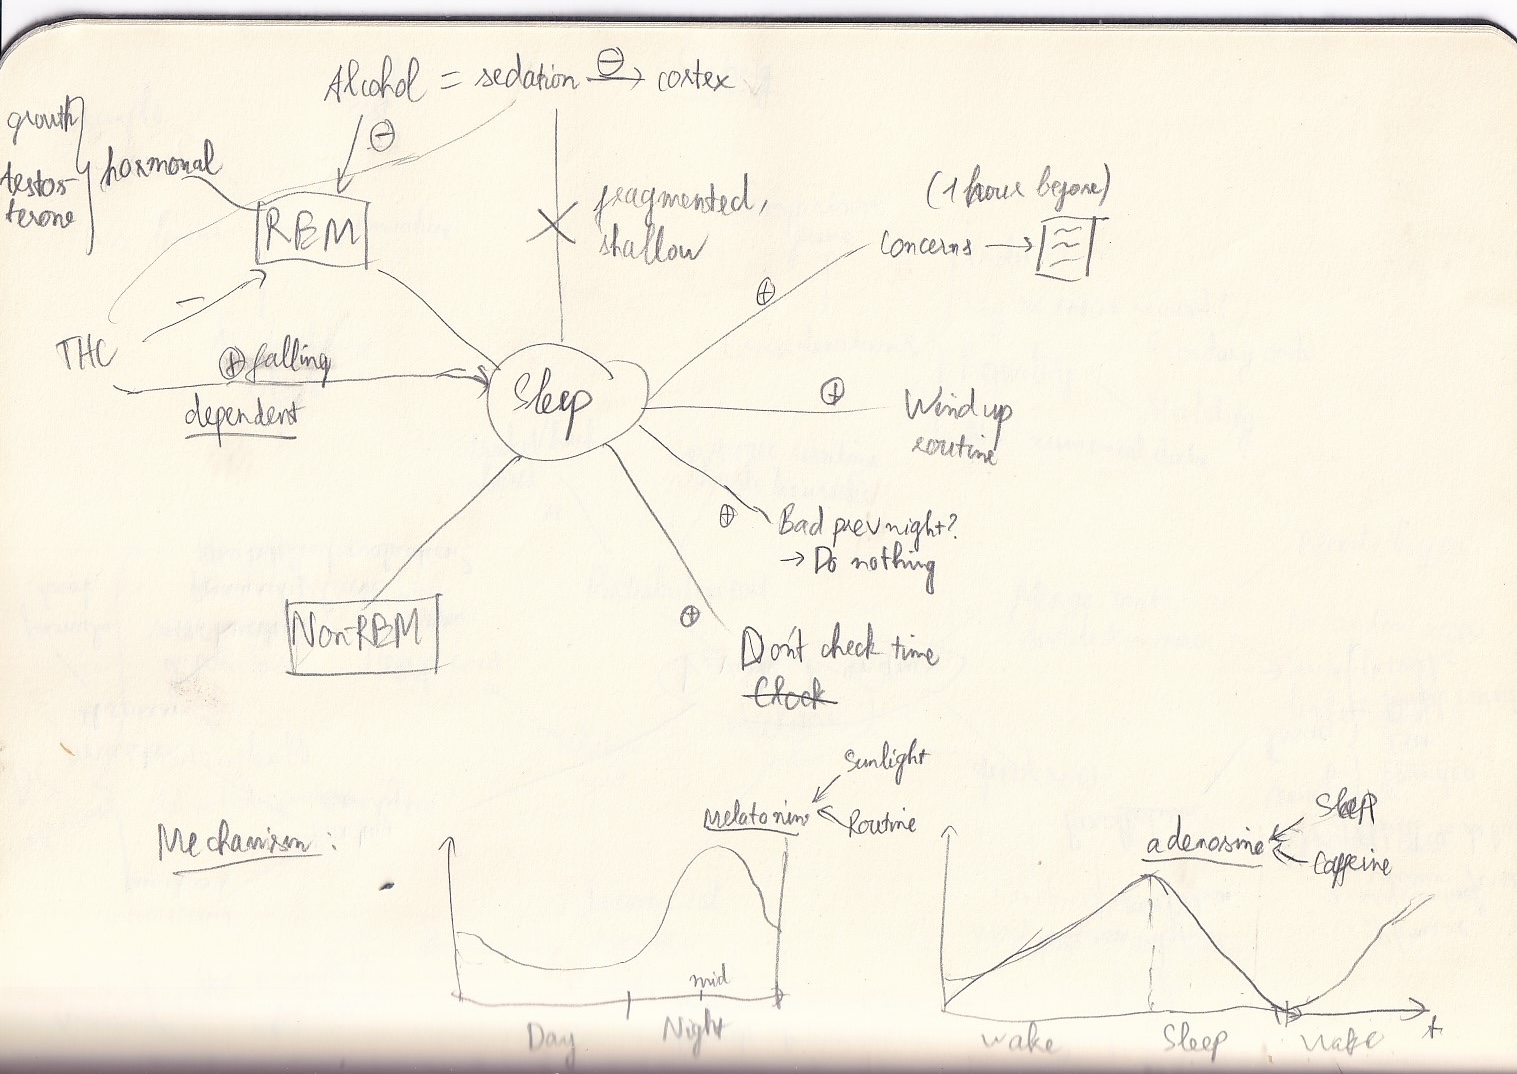 Alcohol = sedation ⊖→ cortex
⊖
growth
testos-
terone
hormonal
REM
fragmented,
shallow
(1 hour before)
concerns →
⊕
THC
−
⊕ falling
dependent
Sleep
⊕
Wind up
routine
⊕
Bad prev night?
→ Do nothing
Non-REM
⊕
Don't check time
Clock
Mechanism :
Melatonin
Sunlight
Routine
mid
Day
Night
adenosine
Sleep
Caffeine
wake
Sleep
wake
t